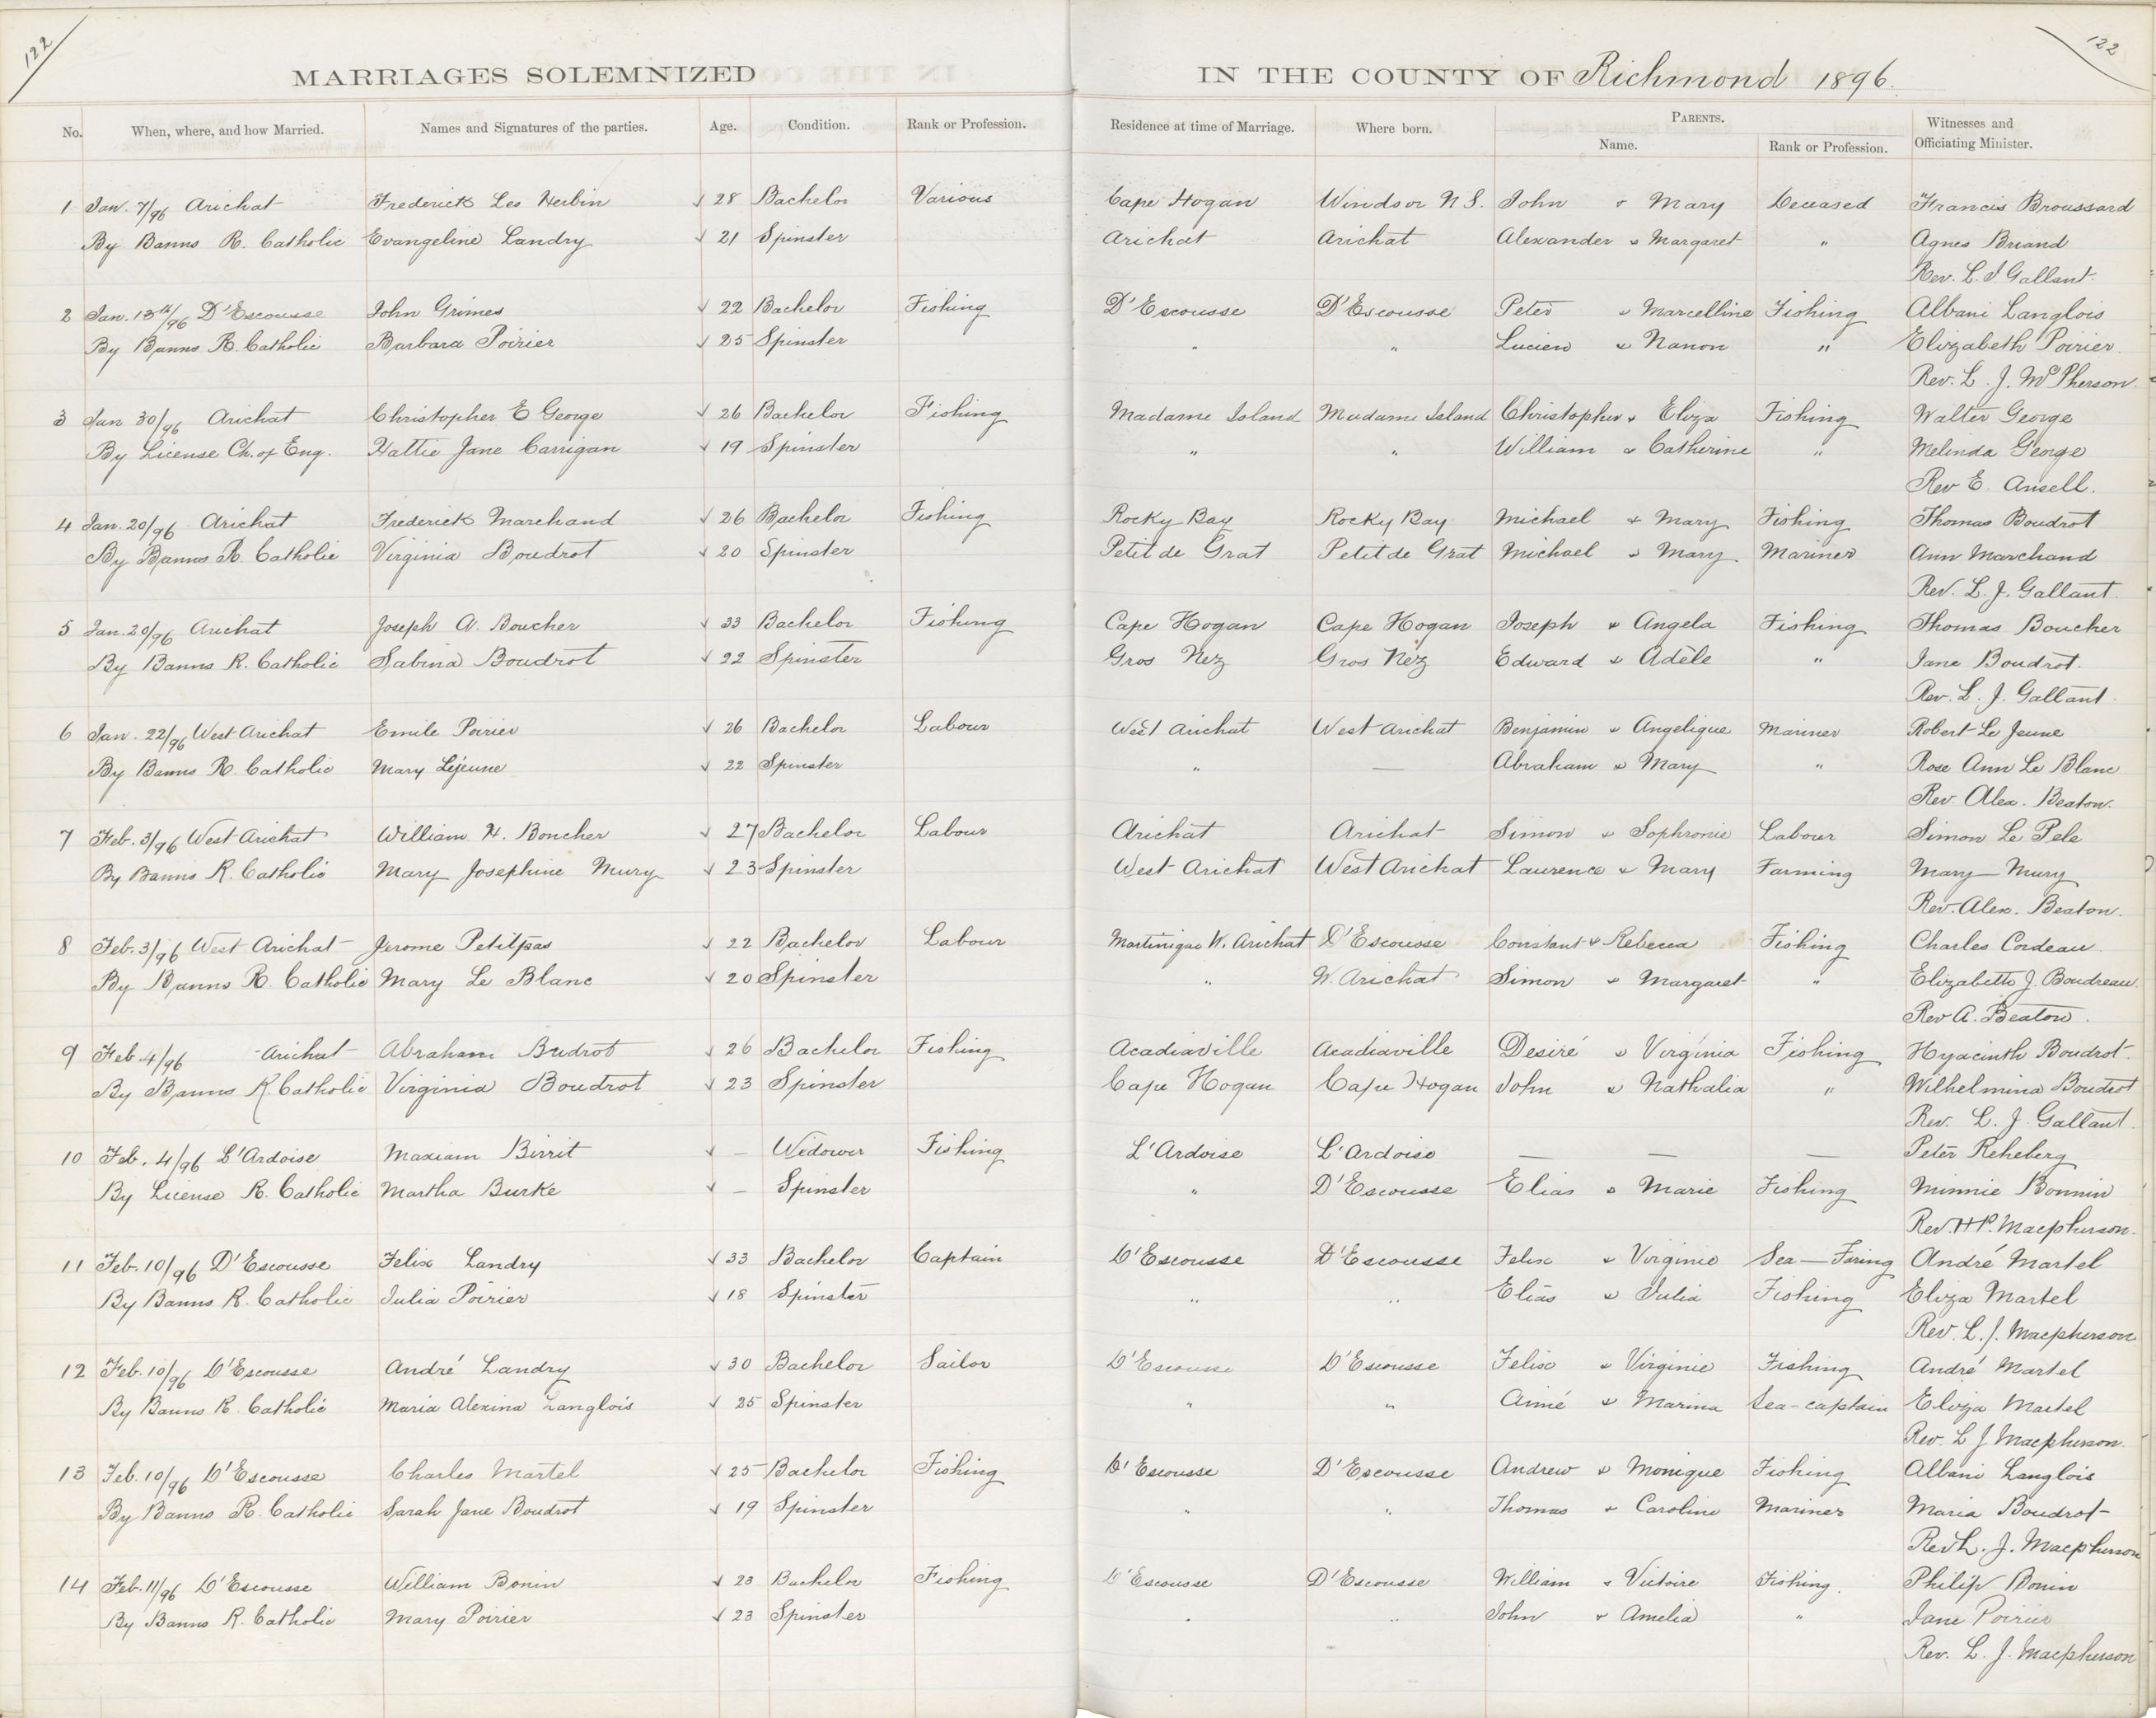 122
122
MARRIAGES SOLEMNIZED IN THE COUNTY OF Richmond 1896.
No. When, where, and how Married. Names and Signatures of the parties. Age. Condition. Rank or Profession. Residence at time of Marriage. Where born. PARENTS. Name. Rank or Profession. Witnesses and Officiating Minister.
1 Jan. 7/96 Arichat Frederick Les Herbin √ 28 Bachelor Various Cape Hogan Windsor N S. John & Mary Deceased Francis Broussard
By Banns R. Catholic Evangeline Landry √ 21 Spinster Arichat Arichat Alexander & Margaret " Agnes Briand
Rev. L. J Gallant.
2 Jan. 13th/96 D'Escousse John Grimes √ 22 Bachelor Fishing D'Escousse D'Escousse Peter & Marcelline Fishing Albani Langlois
By Banns R. Catholic Barbara Poirier √ 25 Spinster " " Lucien & Nanon " Elizabeth Poirier.
Rev. L. J. McPherson.
3 Jan 30/96 Arichat Christopher E George √ 26 Bachelor Fishing Madame Island Madame Island Christopher & Eliza Fishing Walter George
By License Ch. of Eng. Hattie Jane Carrigan √ 19 Spinster " " William & Catherine " Melinda George
Rev E. Ansell.
4 Jan. 20/96 Arichat Frederick Marchand √ 26 Bachelor Fishing Rocky Bay Rocky Bay Michael & Mary Fishing Thomas Boudrot
By Banns R. Catholic Virginia Boudrot √ 20 Spinster Petit de Grat Petit de Grat Michael & Mary Mariner Ann Marchand
Rev. L. J. Gallant.
5 Jan. 20/96 Arichat Joseph A. Boucher √ 33 Bachelor Fishing Cape Hogan Cape Hogan Joseph & Angela Fishing Thomas Boucher
By Banns R. Catholic Sabina Boudrot √ 22 Spinster Gros Nez Gros Nez Edward & Adèle " Jane Boudrot.
Rev. L. J. Gallant.
6 Jan. 22/96 West Arichat Emile Poirier √ 26 Bachelor Labour West Arichat West Arichat Benjamin & Angelique Mariner Robert Le Jeune
By Banns R. Catholic Mary Lejeune √ 22 Spinster " — Abraham & Mary " Rose Ann Le Blanc
Rev. Alex. Beaton.
7 Feb. 3/96 West Arichat William H. Boucher √ 27 Bachelor Labour Arichat Arichat Simon & Sophronie Labour Simon Le Pele
By Banns R. Catholic Mary Josephine Mury √ 23 Spinster West Arichat West Arichat Laurence & Mary Farming Mary Mury
Rev. Alex. Beaton.
8 Feb. 3/96 West Arichat Jerome Petitpas √ 22 Bachelor Labour Martinique W. Arichat D'Escousse Constant & Rebecca Fishing Charles Cordeau.
By Banns R. Catholic Mary Le Blanc √ 20 Spinster " W. Arichat Simon & Margaret " Elizabeth J. Boudreau.
Rev A. Beaton.
9 Feb. 4/96 Arichat Abraham Budrot √ 26 Bachelor Fishing Acadiaville Acadiaville Desiré & Virginia Fishing Hyacinth Boudrot.
By Banns R. Catholic Virginia Boudrot √ 23 Spinster Cape Hogan Cape Hogan John & Nathalia " Wilhelmina Boudrot
Rev. L. J Gallant.
10 Feb. 4/96 L'Ardoise Maxiam Birrit √ — Widower Fishing L'Ardoise L'Ardoise — — — Peter Reheberg
By License R. Catholic Martha Burke √ — Spinster " D'Escousse Elias & Marie Fishing Minnie Bonnin
Rev. Macpherson.
11 Feb. 10/96 D'Escousse Felix Landry √ 33 Bachelor Captain D'Escousse D'Escousse Felix & Virginie Sea—Faring André Martel
By Banns R. Catholic Julia Poirier √ 18 Spinster " " Elias & Julia Fishing Eliza Martel
Rev. L. J. Macpherson
12 Feb. 10/96 D'Escousse André Landry √ 30 Bachelor Sailor D'Escousse D'Escousse Felix & Virginie Fishing André Martel
By Banns R. Catholic Maria Alexina Langlois √ 25 Spinster " " Aimé & Marina Sea-captain Eliza Martel
Rev. L J Macpherson.
13 Feb. 10/96 D'Escousse Charles Martel √ 25 Bachelor Fishing D'Escousse D'Escousse Andrew & Monique Fishing Albani Langlois
By Banns R. Catholic Sarah Jane Boudrot √ 19 Spinster " " Thomas & Caroline Mariner Maria Boudrot
Rev L. J. Macpherson
14 Feb. 11/96 D'Escousse William Bonin √ 23 Bachelor Fishing D'Escousse D'Escousse William & Victoire Fishing. Philip Bonin
By Banns R. Catholic Mary Poirier √ 23 Spinster " " John & Amelia " Jane Poirier
Rev. L. J. Macpherson